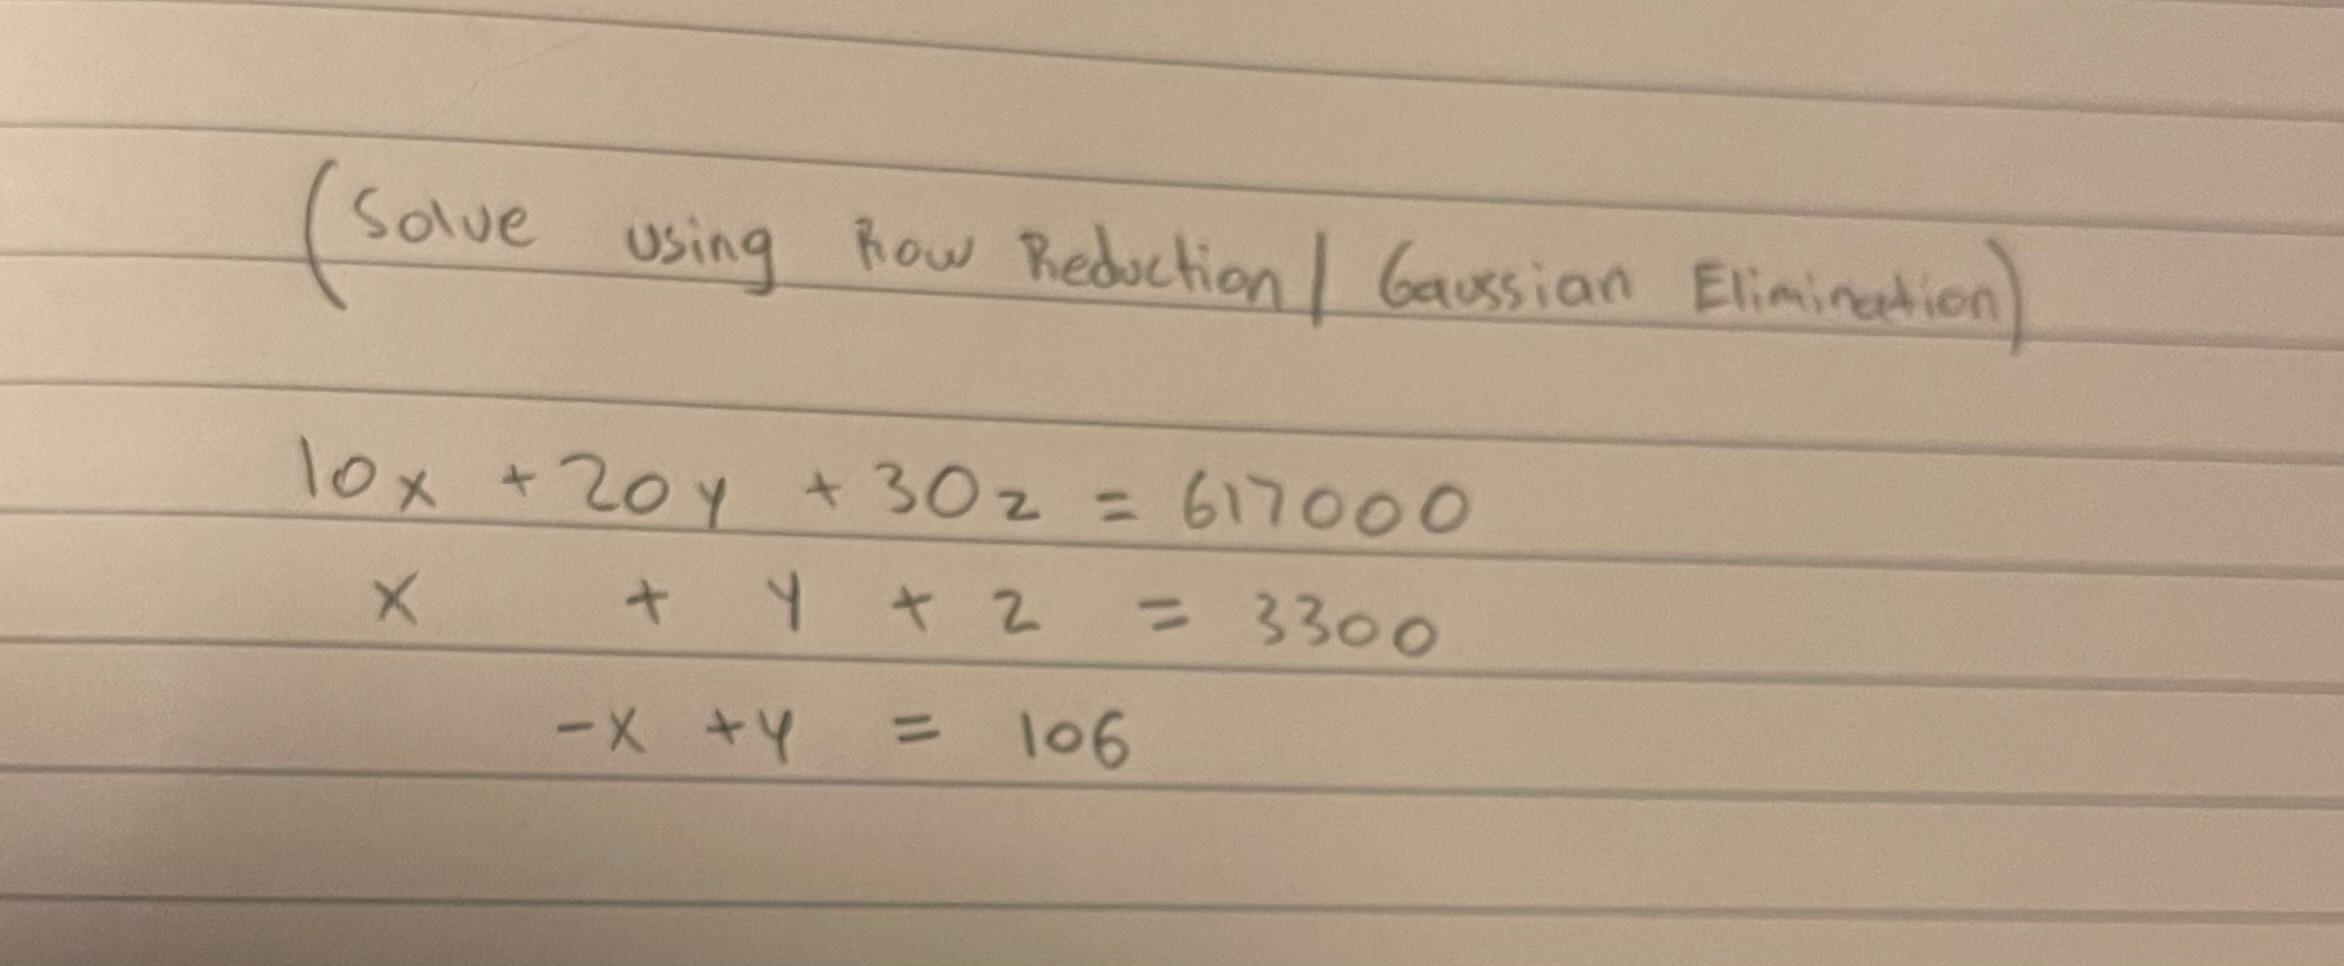 (Solve using Row Reduction | Gaussian Elimination)
10x + 20y + 30z = 617000
x + y + z = 3300
-x + y = 106